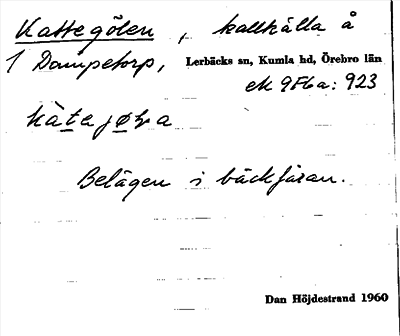 Kattegölen, kallkälla å
1 Dampetorp, Lerbäcks sn, Kumla hd, Örebro län
ek 9F6a: 923
Belägen i bäckfåran.
Dan Höjdestrand 1960